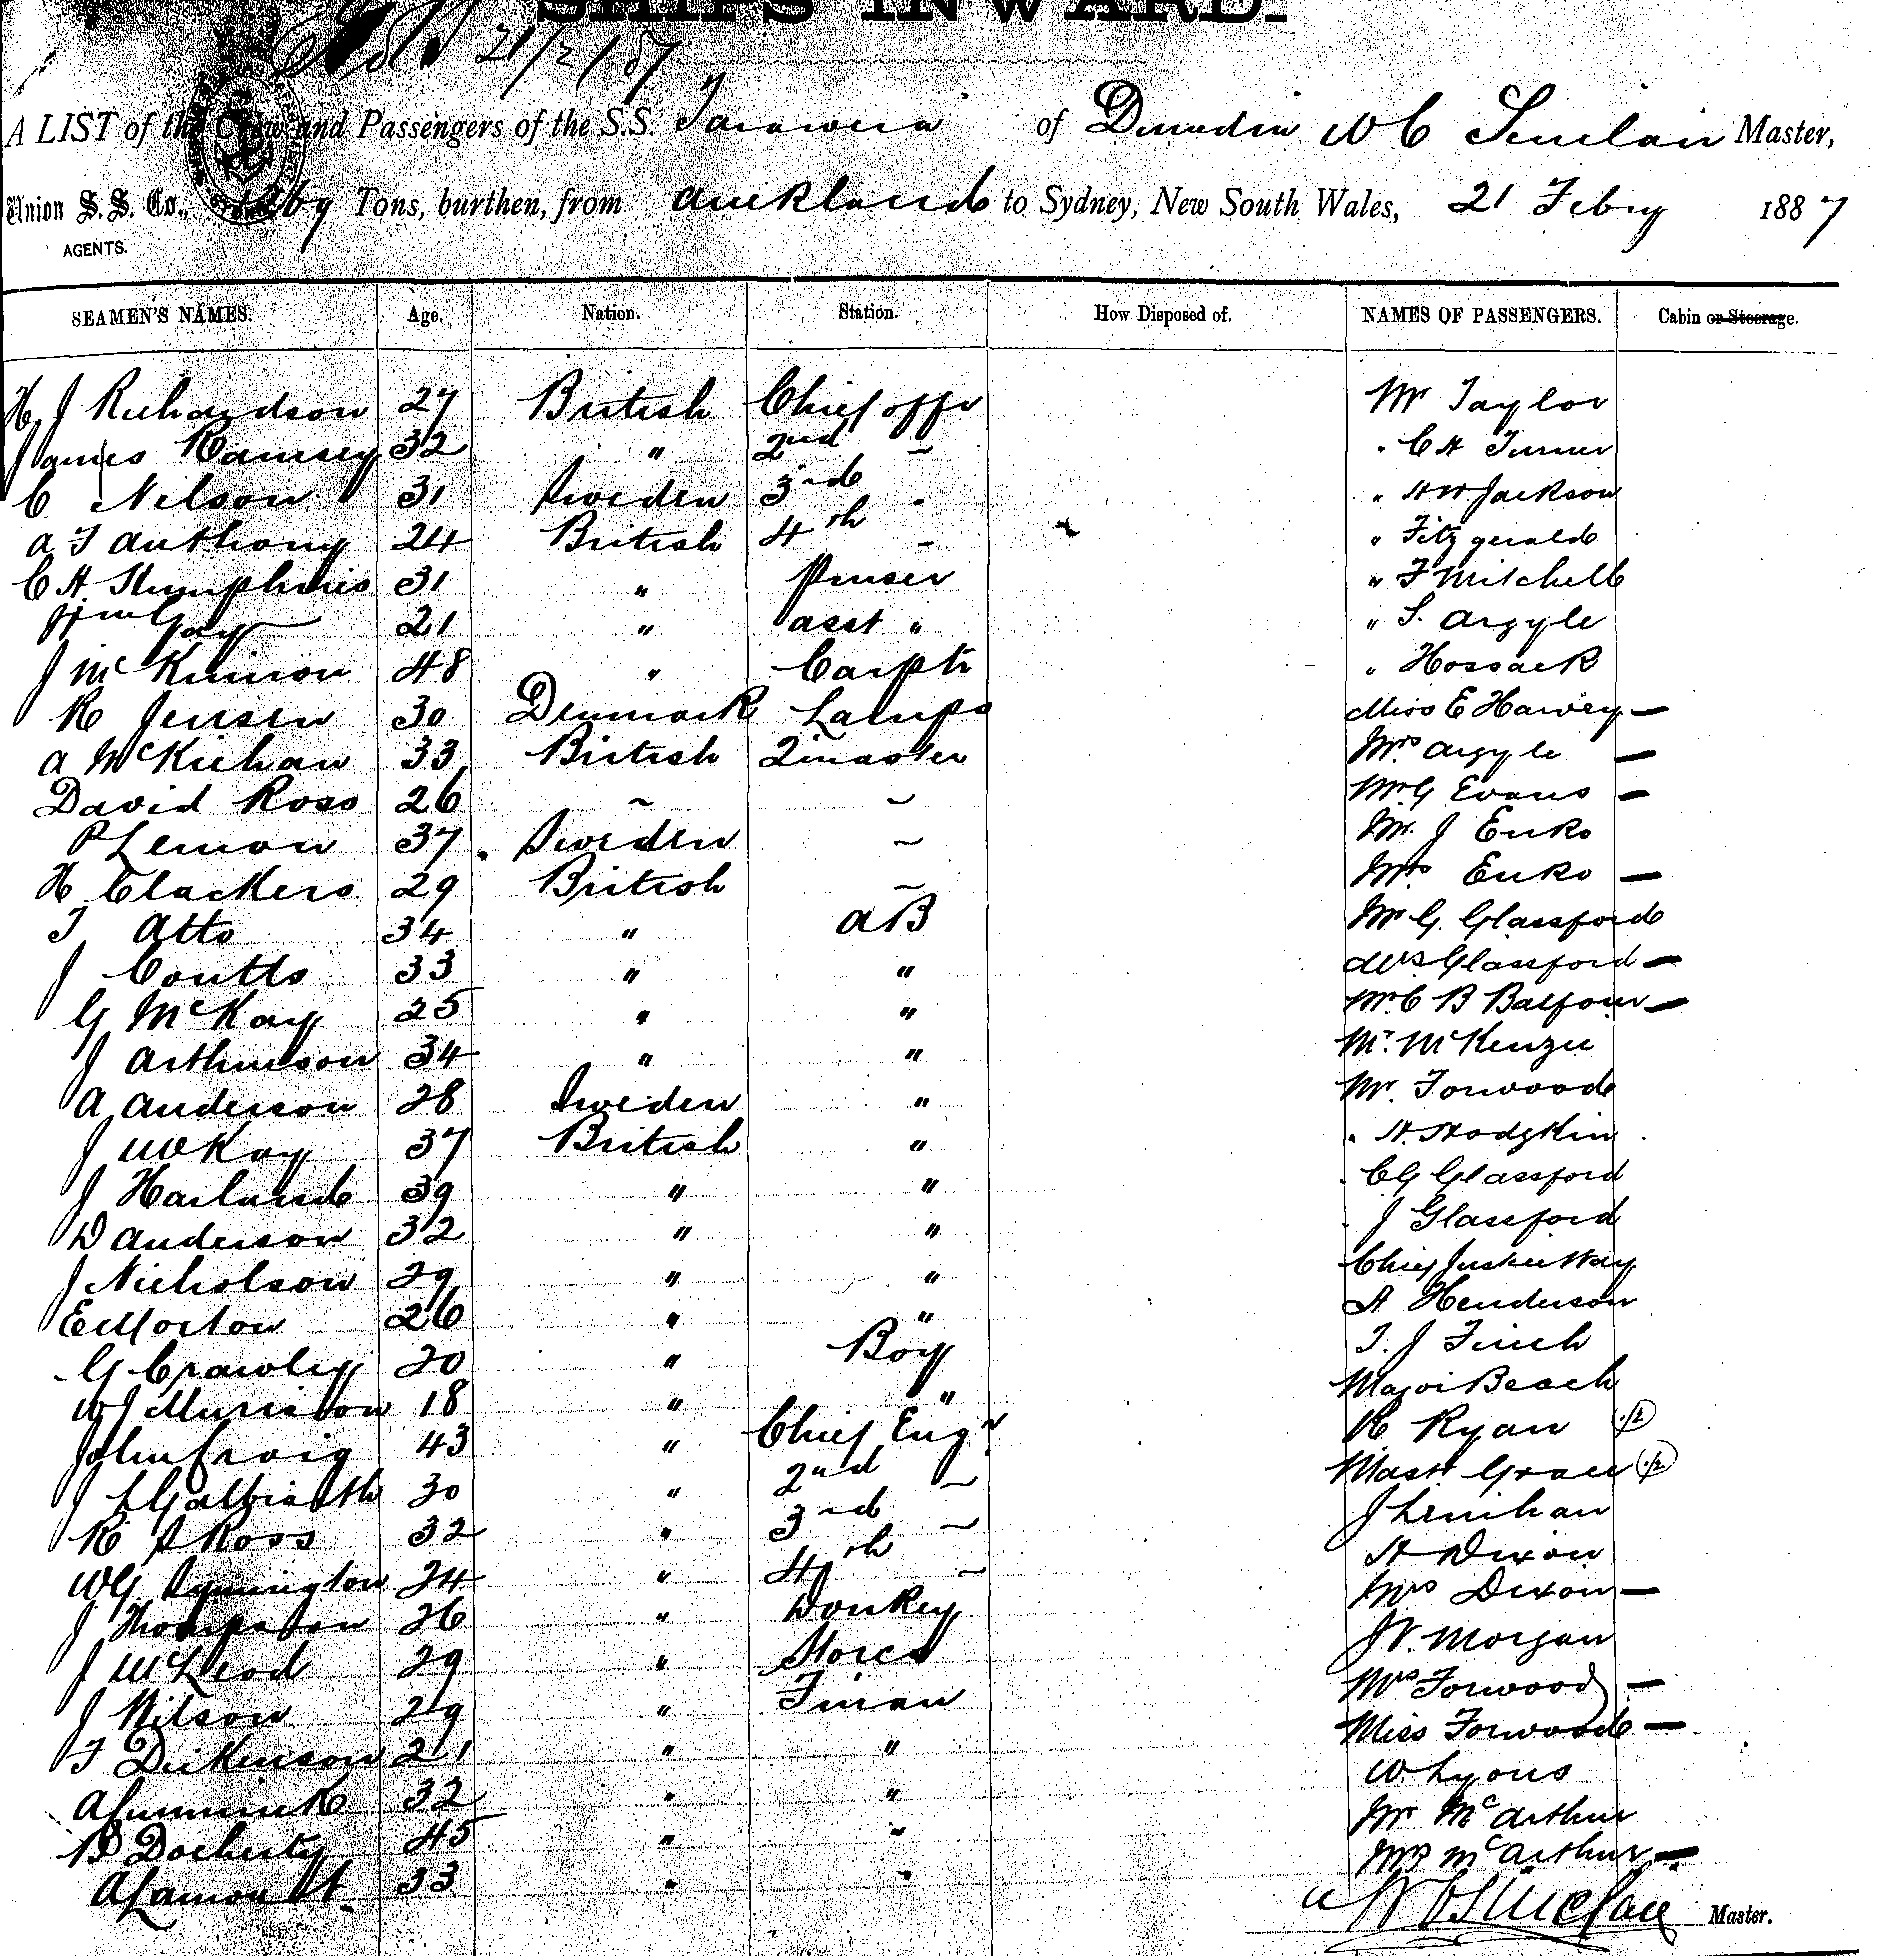 SHIPS INWARD.
21/2/87
A LIST of the Crew and Passengers of the S.S. Tarawera of Dunedin W C Sinclair Master,
Union S. S. Co., Tons, burthen, from Auckland to Sydney, New South Wales, 21 Feby 1887
AGENTS.
SEAMEN'S NAMES. Age. Nation. Station. How Disposed of. NAMES OF PASSENGERS. Cabin or Steerage.
H J Richardson 27 British Chief offr Mr Taylor
James Ramsey 32 " 2nd ~ " C H Turner
C Nilson 31 Sweden 3rd " " H W Jackson
A T Anthony 24 British 4th ~ " Fitzgerald
C H Humphries 31 " Purser " F Mitchell
Gay 21 " asst " " S. Argyle
J McKinnon 48 " Carptr " Hossack
K Jensen 30 Denmark Lamps Miss E Harvey —
A McKiehan 33 British Qmaster Mrs Argyle —
David Ross 26 ~ ~ Mrs G Evans —
P Lemon 37 Sweden ~ Mr. J Enko
H Clackers 29 British ~ Mrs Enko —
T Atto 34 " AB Mr G. Glassford
J Coutts 33 " " Mrs Glassford —
G McKay 25 " " Mrs C B Balfour —
J Arthurson 34 " " Mr. McKenzie
A Anderson 28 Sweden " Mr. Forwood
J McKay 37 British " " H. Hodgkin
J Harland 39 " " " C G Glassford
D Anderson 32 " " " J Glassford
J Nicholson 29 " " Chief Justice Way
E Morton 26 " " H Henderson
G Crawley 20 " Boy T. J Finch
W J Murison 18 " " Major Beach
John Craig 43 " Chief Engr K Ryan ½
J L Galbraith 30 " 2nd ~ Mastr Grace ½
K S Ross 32 " 3rd ~ J Lenihan
W G Symington 24 " 4th ~ H Dixon
J Thompson 26 " Donkey Mrs Dixon —
J McLeod 29 " Stores J W. Morgan
J Wilson 29 " Firman Mrs Forwood —
T Dickinson 21 " " Miss Forwood —
A Cumminck 32 " " W. Lyons
B Docherty 45 " " Mr McArthur
A Lamont 33 " " Mrs McArthur —
W C Sinclair Master.